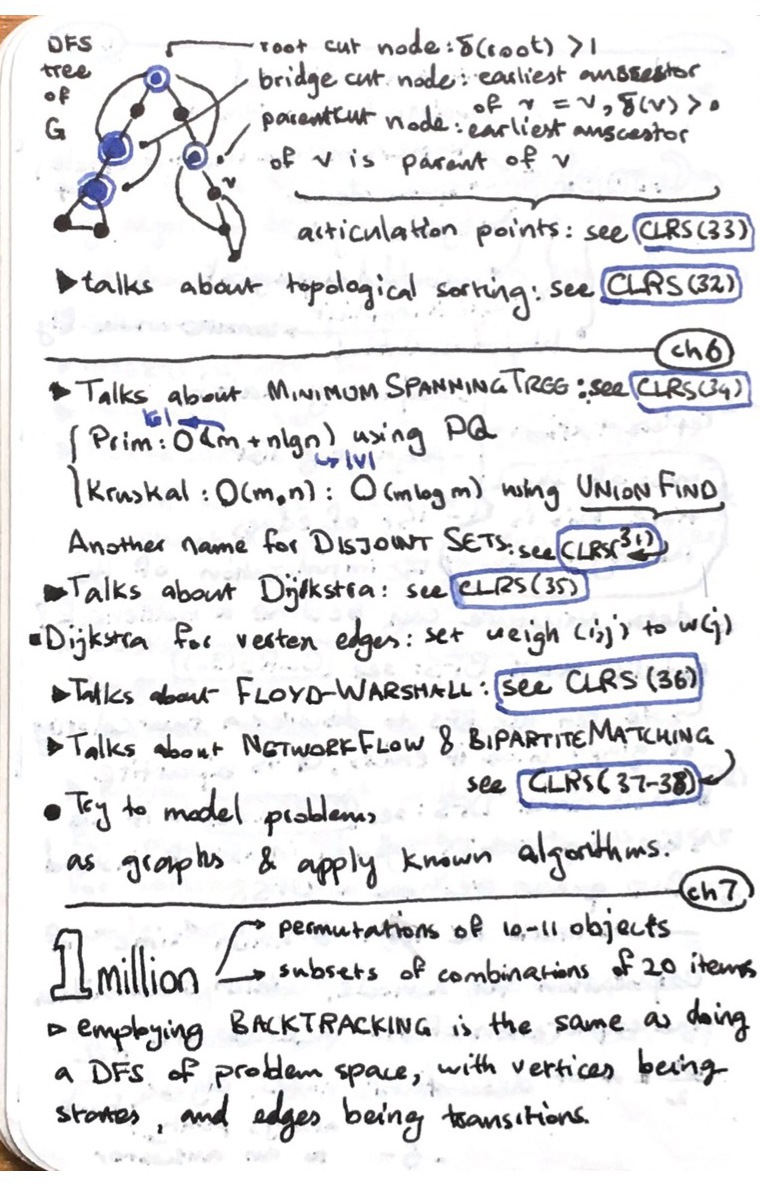 DFS
tree
of
G
root cut node: δ(root) > 1
bridge cut node: earliest anscestor
of v = v, δ(v) > 0
parent cut node: earliest anscestor
of v is parent of v
v
articulation points: see CLRS(33)
▶ talks about topological sorting: see CLRS(32)
ch6
▶ Talks about MINIMUM SPANNING TREE: see CLRS(34)
|E|
Prim: O(m + nlgn) using PQ
↳ |V|
Kruskal: O(m,n): O(mlogm) using UNION FIND
Another name for DISJOINT SETS: see CLRS(31)
▶ Talks about Dijkstra: see CLRS(35)
▪ Dijkstra for verten edges: set weigh (i,j) to w(j)
▶ Talks about FLOYD-WARSHALL: see CLRS (36)
▶ Talks about NETWORK FLOW & BIPARTITE MATCHING
see CLRS(37-38)
● Try to model problems
as graphs & apply known algorithms.
ch7
1 million
→ permutations of 10-11 objects
→ subsets of combinations of 20 items
▷ employing BACKTRACKING is the same as doing
a DFS of problem space, with vertices being
states, and edges being transitions.